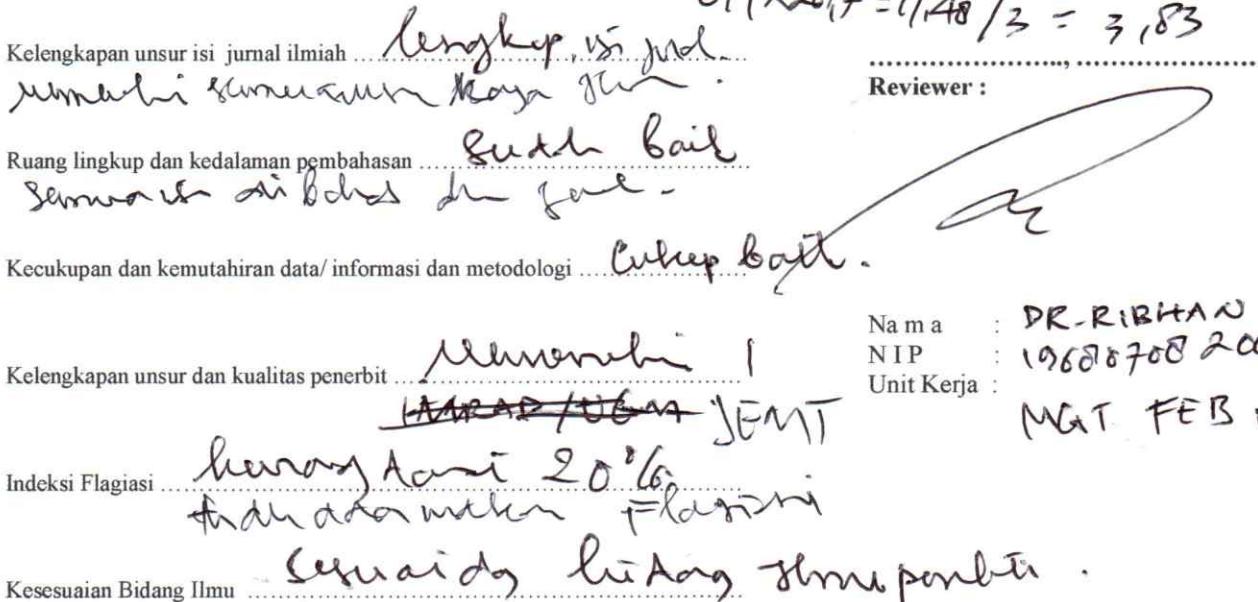 = 11,48/3 = 3,83
Kelengkapan unsur isi jurnal ilmiah ... lengkap, isi
Ruang lingkup dan kedalaman pembahasan ... Sudah baik
Kecukupan dan kemutahiran data/ informasi dan metodologi ... Cukup baik.
Kelengkapan unsur dan kualitas penerbit ... Memenuhi
JEMT
Indeksi Flagiasi ... kurang dari 20%
tidak ada Flagiasi
Kesesuaian Bidang Ilmu ... Sesuai dg bidang ilmu .
......................, ......................
Reviewer :
N a m a : DR-RIBHAN
N I P :
Unit Kerja :
MGT FEB